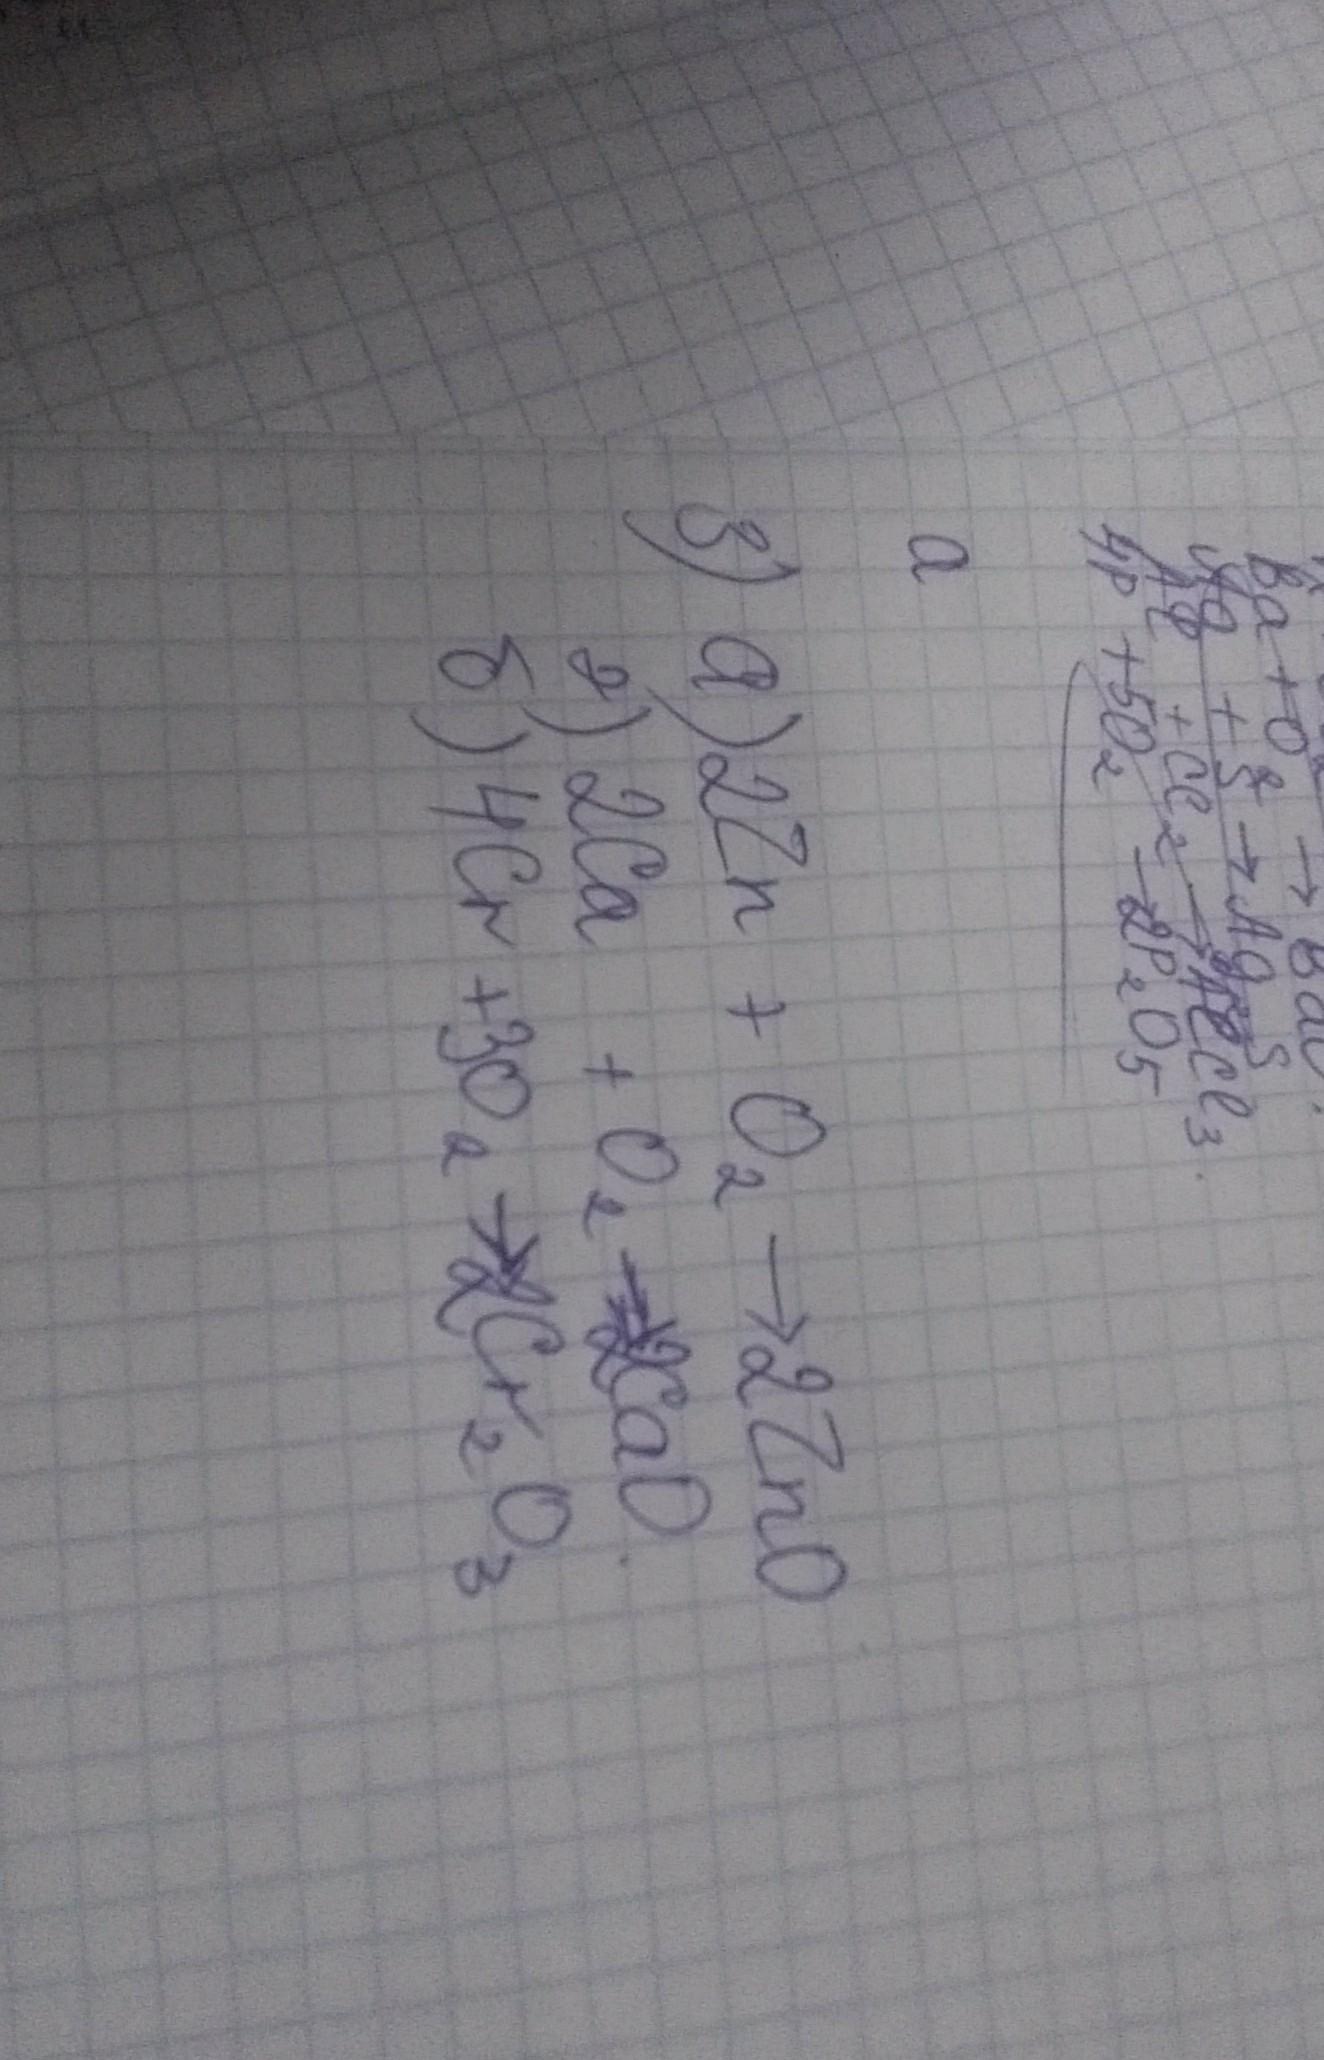 Ba + O₂ → BaO
+ S → Ag₂S
Al + Cl₂ → AlCl₃.
4P + 5O₂ → 2P₂O₅
a
3) а) 2Zn + O₂ → 2ZnO
г) 2Ca + O₂ → 2CaO.
б) 4Cr + 3O₂ → 2Cr₂O₃